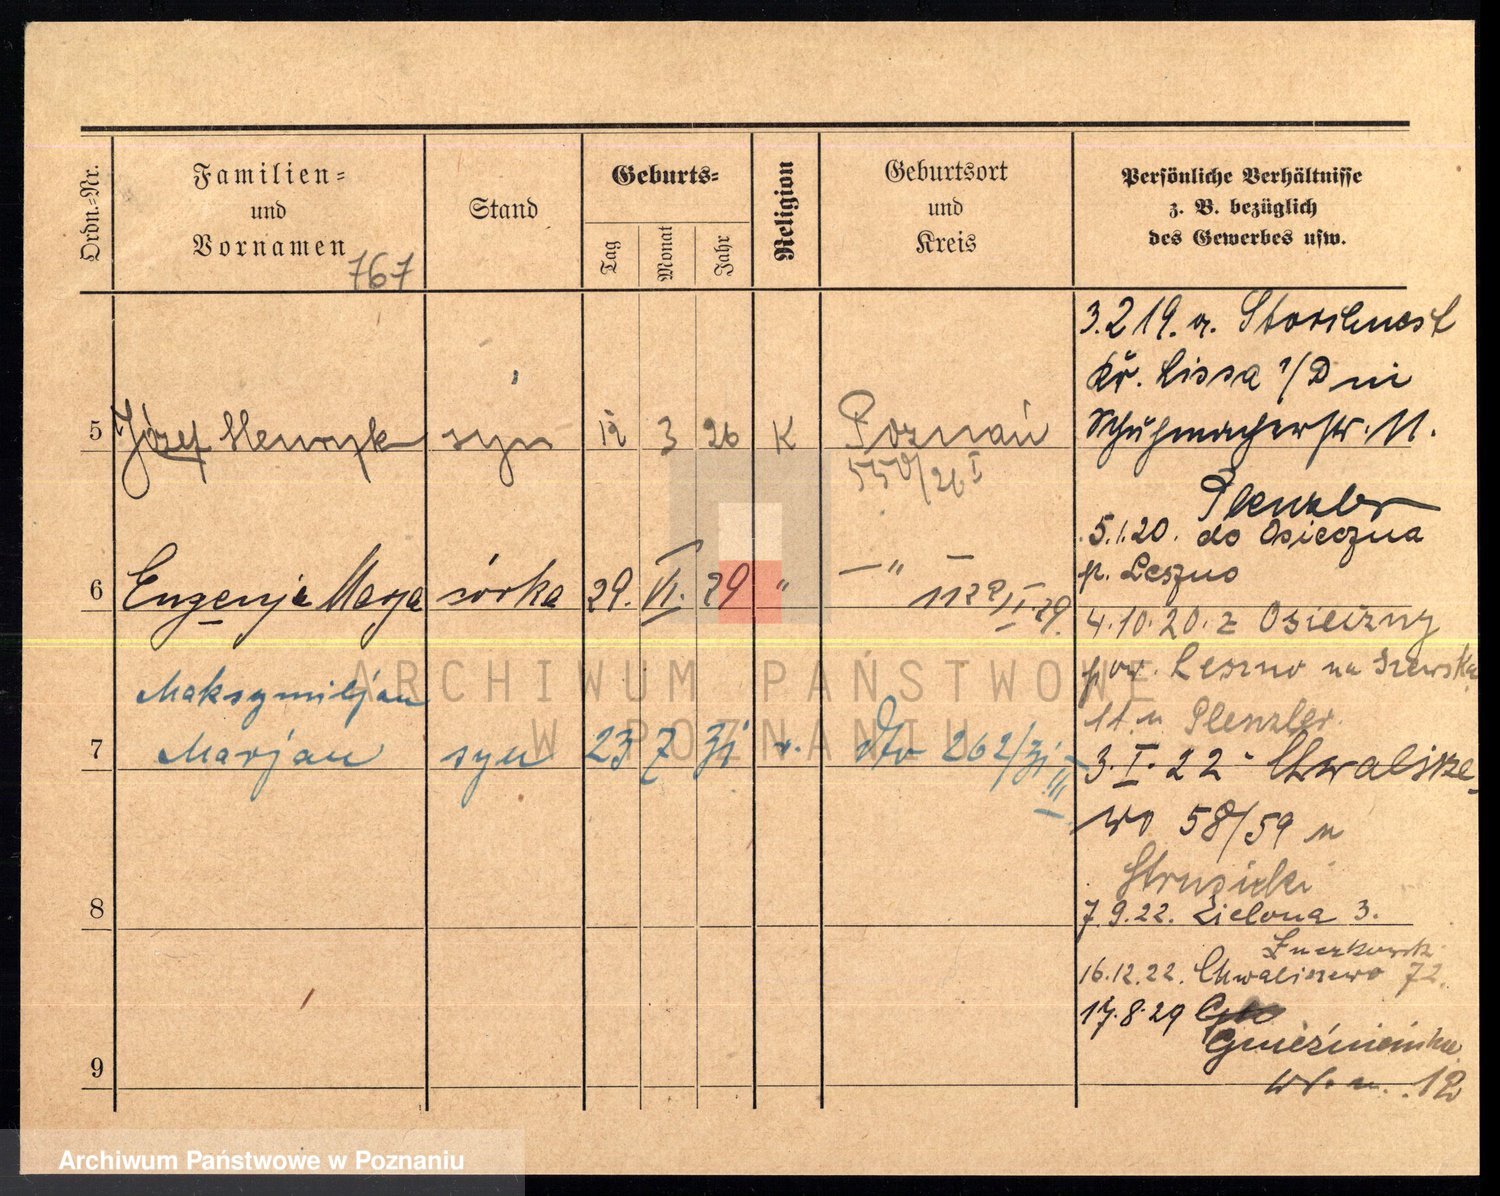 Ordn.-Nr.
Familien-
und
Vornamen
767
Stand
Geburts-
Tag
Monat
Jahr
Religion
Geburtsort
und
Kreis
Persönliche Verhältnisse
z. B. bezüglich
des Gewerbes usw.
5 Józef Henryk syn 12 3 26 K Poznań
550/26 I
6 Eugenja Marja córka 29. VI. 29 " —"—
7 Maksymiljan
Marjan syn 23 7 31 dto 262/31 III
8
9
3.2 19. a. Storchnest
Kr. Lissa
Schuhmacherstr. 11.
Plenzler
5.1.20. do Osieczna
p. Leszno
4.10.20. z Osieczny
pow. Leszno na Szewską
11 u Plenzler.
3. I. 22 - Chwalisze-
wo 58/59 u
7.9.22. Zielona 3.
16.12.22. Chwaliszewo 72.
17.8.29
Gnieźnieńska
12
ARCHIWUM PAŃSTWOWE
W POZNANIU
Archiwum Państwowe w Poznaniu